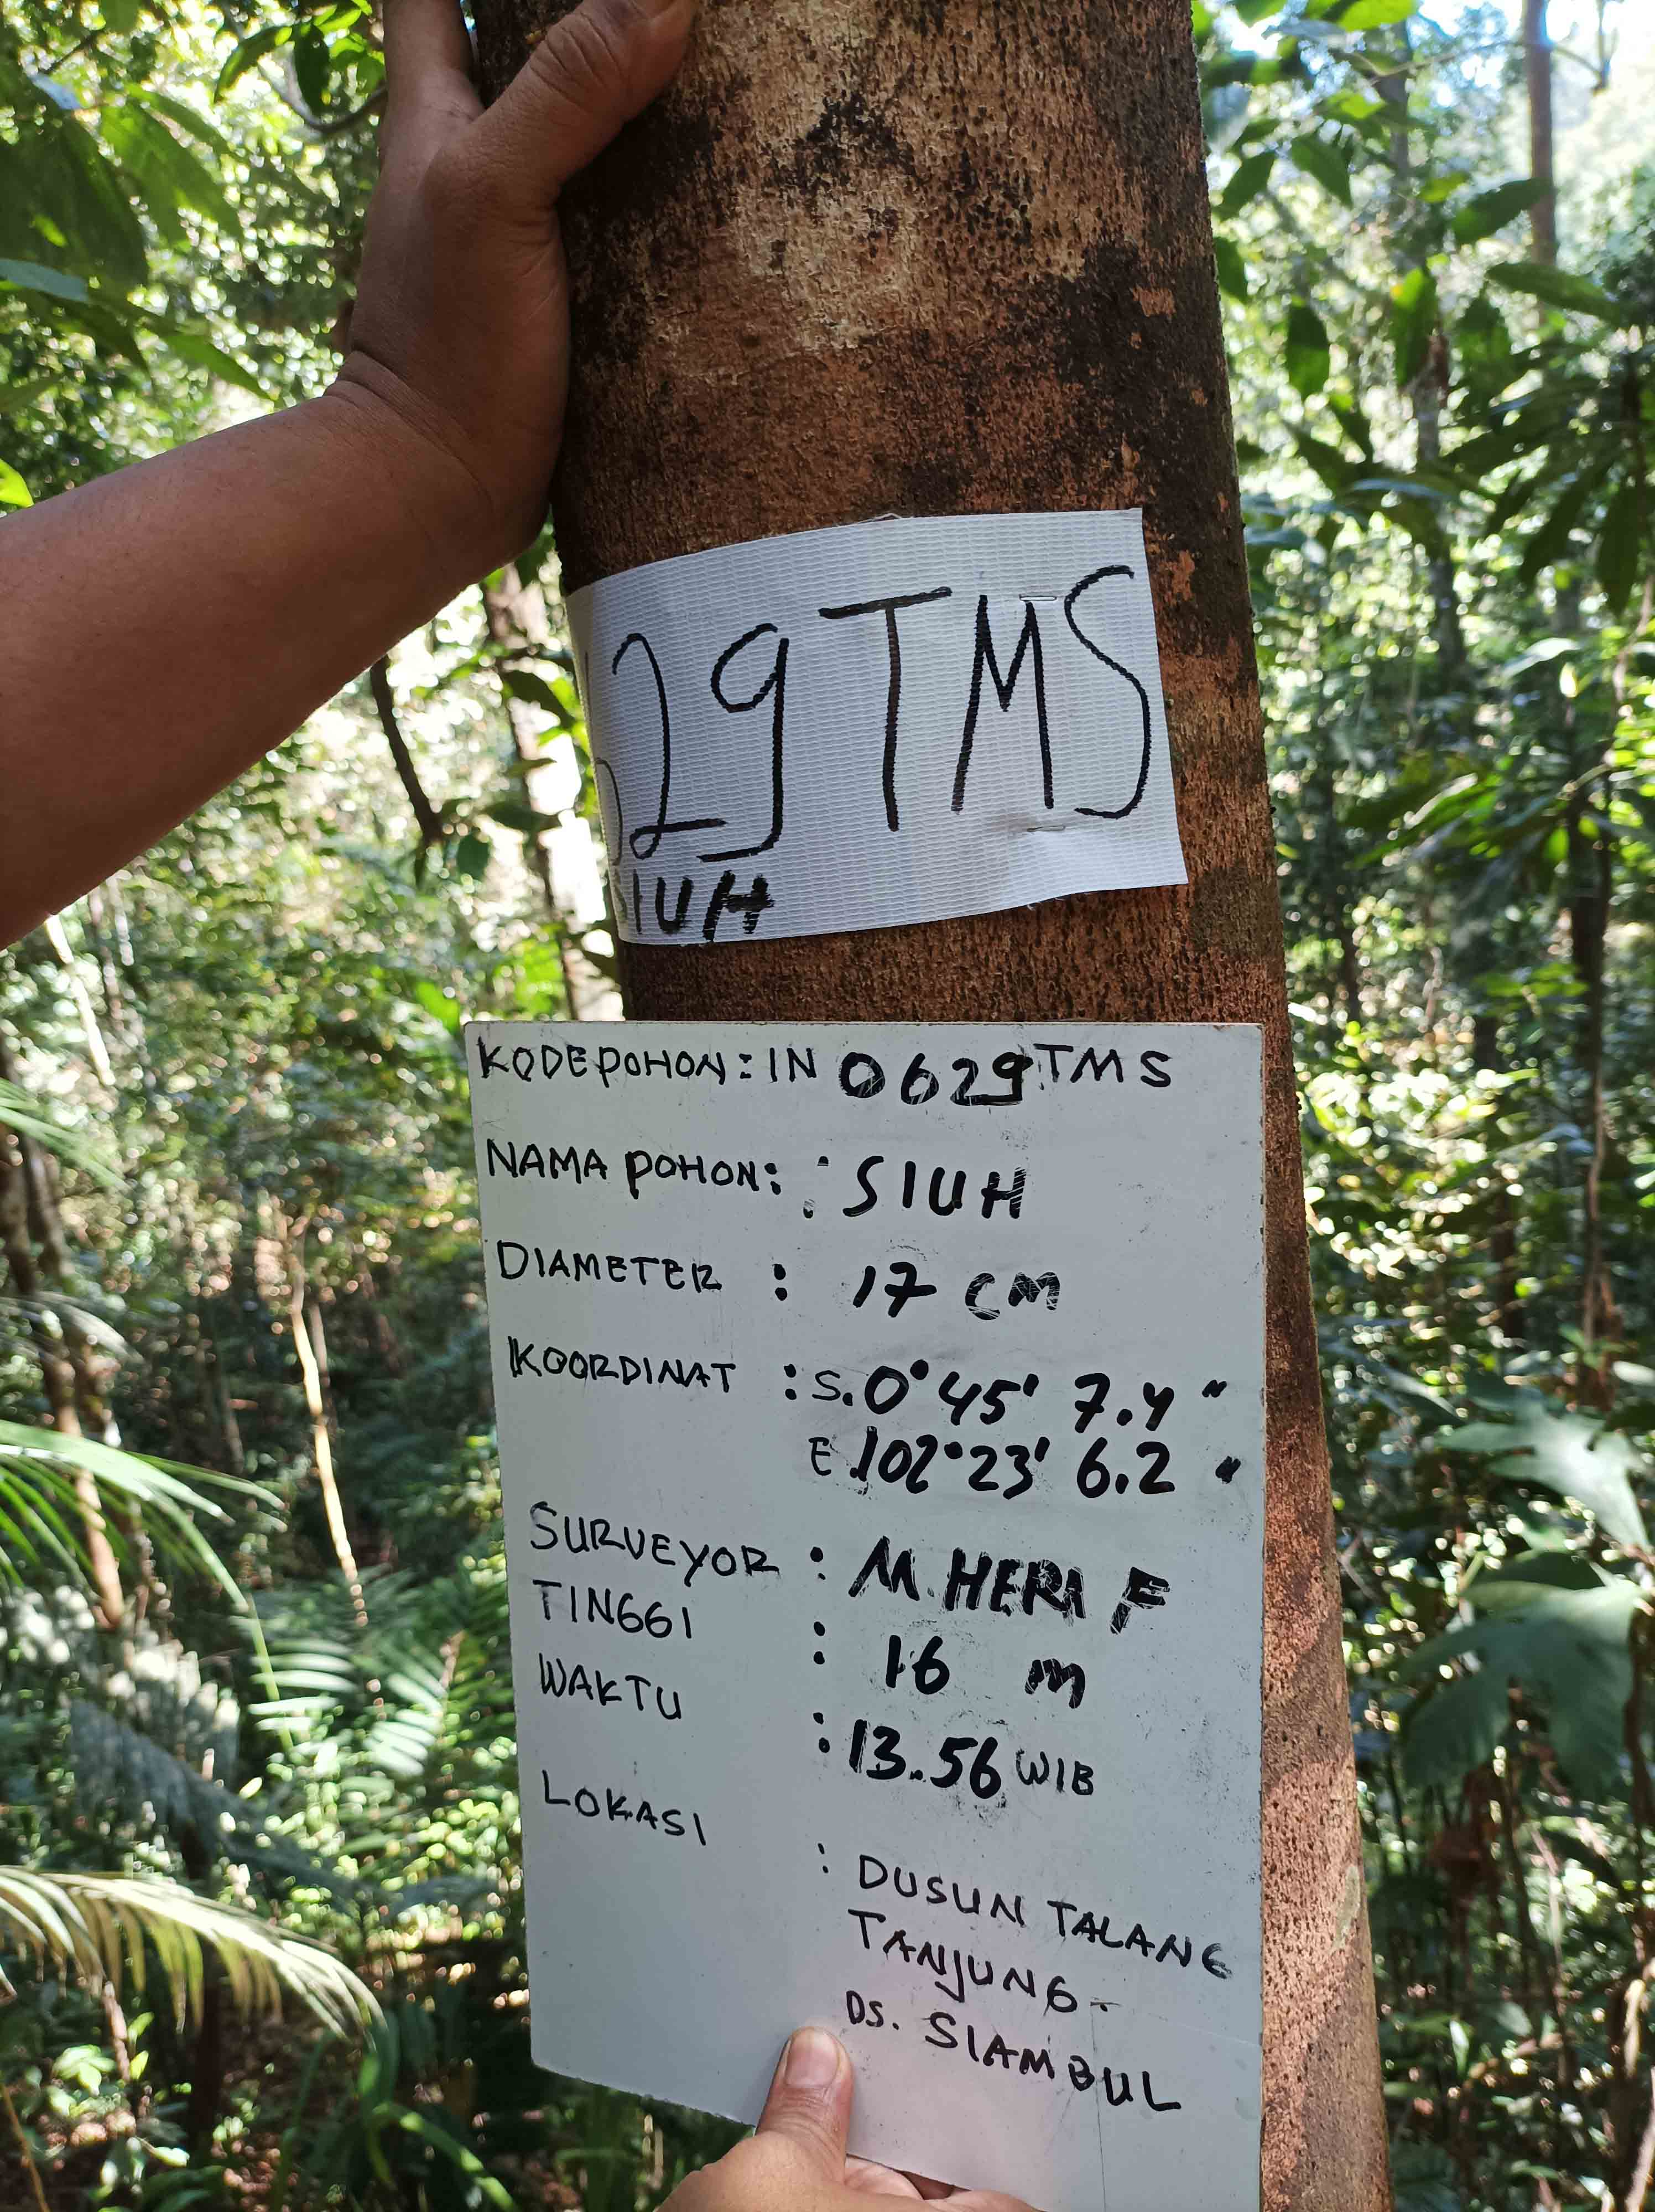 29 TMS
SIUH
KODE POHON : IN 0629 TMS
NAMA POHON : : SIUH
DIAMETER : 17 CM
KOORDINAT : S. 0° 45' 7.4 "
E. 102° 23' 6.2 "
SURVEYOR : M. HERI F
TINGGI : 16 m
WAKTU : 13.56 WIB
LOKASI : DUSUN TALANG
TANJUNG.
DS. SIAMBUL